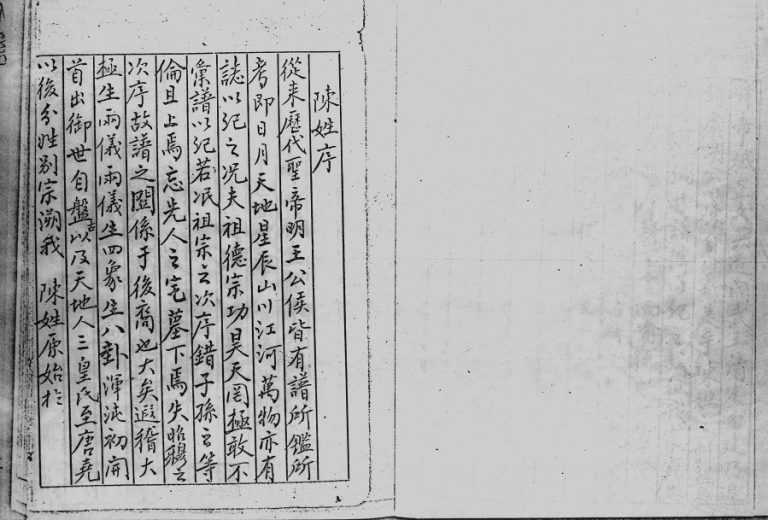 陳姓序
從来歷代聖帝明王公侯皆有譜所鑑所
考即日月天地星辰山川江河萬物亦有
誌以紀之况夫祖德宗功昊天罔極敢不
彙譜以紀若泯祖宗之次序錯子孫之等
倫且上焉忘先人之宅墓下焉失昭穆之
次序故譜之關係于後裔也大矣遐稽大
極生兩儀兩儀生四象生八卦渾沌初開
首出御世自盤古以及天地人三皇氏至唐堯
以後分姓别宗溯我 陳姓原始於